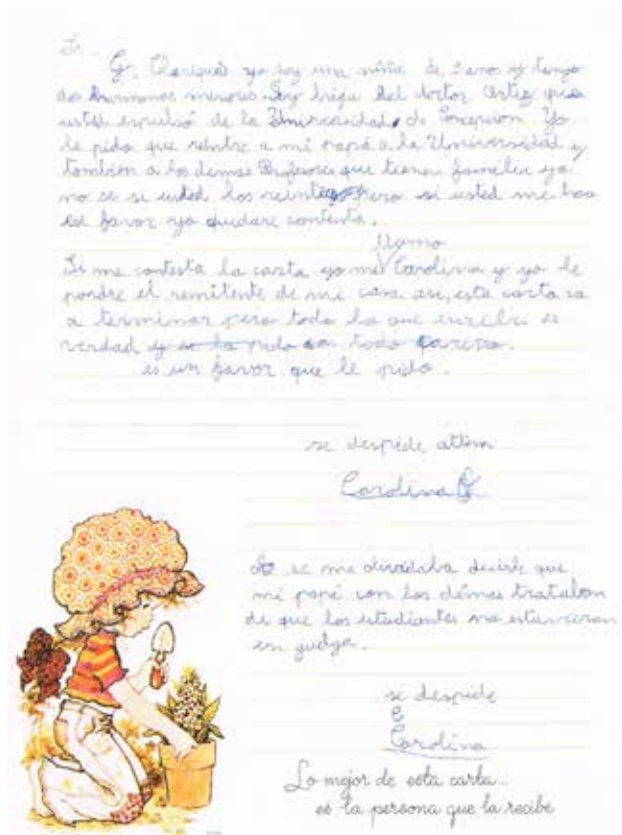 Sr.
G. Clariqued yo soy una niña de 8 años y tengo
dos hermanos menores. Soy higa del doctor Ortiz que
usted expulsó de la Universidad de Concepcion Yo
le pido que reintre a mi papá a la Universidad y
tambien a los demas Profesores que tienen familia yo
no se si usted los reintegre pero si usted me hace
ese favor yo quedare contenta.
llamo
Si me contesta la carta yo me Carolina y yo le
pondre el remitente de mi casa asi, esta carta va
a terminar pero todo lo que escribi es
verdad y se lo pido con todo cariño.
es un favor que le pido.
se despide attem
Carolina O.
se me olvidaba decirle que
mi papá con los démas trataban
de que los estudiantes no estuvieran
en gudga.
se despide
C
Carolina
Lo mejor de esta carta...
es la persona que la recibe